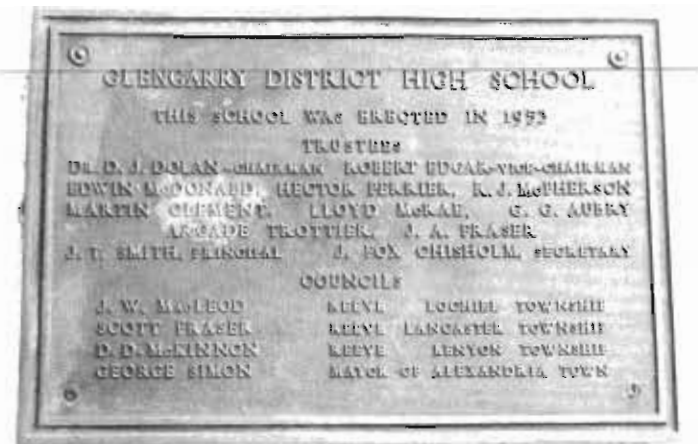 GLENGARRY DISTRICT HIGH SCHOOL
THIS SCHOOL WAS ERECTED IN 1953
TRUSTEES
DR. D. J. DOLAN-CHAIRMAN ROBERT EDGAR-VICE-CHAIRMAN
EDWIN McDONALD, HECTOR PERRIER, R. J. McPHERSON
MARTIN CLEMENT, LLOYD McRAE, G. G. AUBRY
ARCADE TROTTIER, J. A. FRASER
J. T. SMITH, PRINCIPAL J. FOX CHISHOLM, SECRETARY
COUNCILS
J. W. MacLEOD REEVE LOCHIEL TOWNSHIP
SCOTT FRASER REEVE LANCASTER TOWNSHIP
D. D. McKINNON REEVE KENYON TOWNSHIP
GEORGE SIMON MAYOR OF ALEXANDRIA TOWN